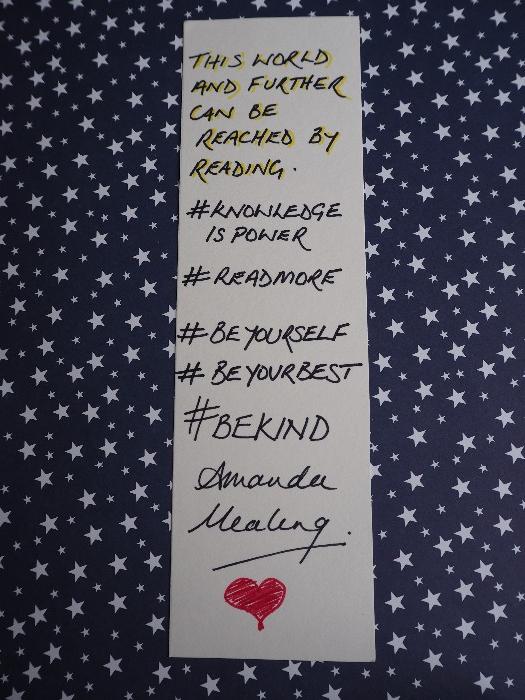 THIS WORLD
AND FURTHER
CAN BE
REACHED BY
READING.
#KNOWLEDGE
IS POWER
#READMORE
#BEYOURSELF
#BEYOURBEST
#BEKIND
Amanda
Mealing.